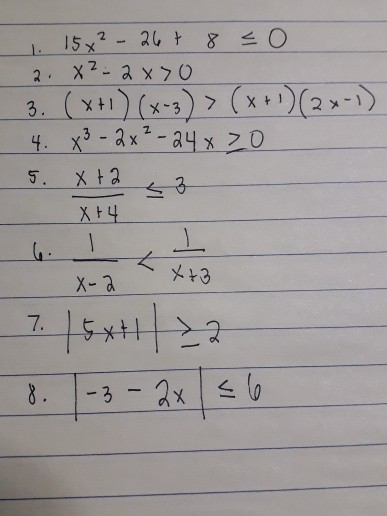 1. 15x² - 26 + 8 ≤ 0
2. x² - 2x > 0
3. (x+1)(x-3) > (x+1)(2x-1)
4. x³ - 2x² - 24x ≥ 0
5. (x+2)/(x+4) ≤ 3
6. 1/(x-2) < 1/(x+3)
7. |5x+1| ≥ 2
8. |-3 - 2x| ≤ 6